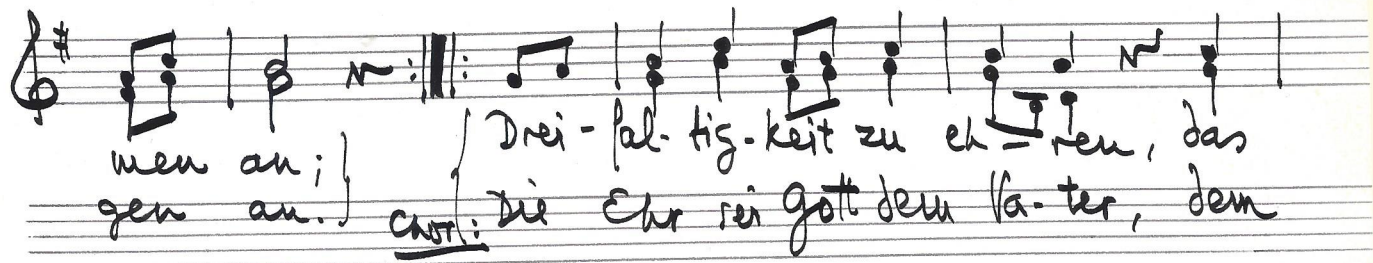 men an; Drei-fal-tig-keit zu eh-ren, das
gen an. Chor: Die Ehr sei Gott dem Va-ter, dem